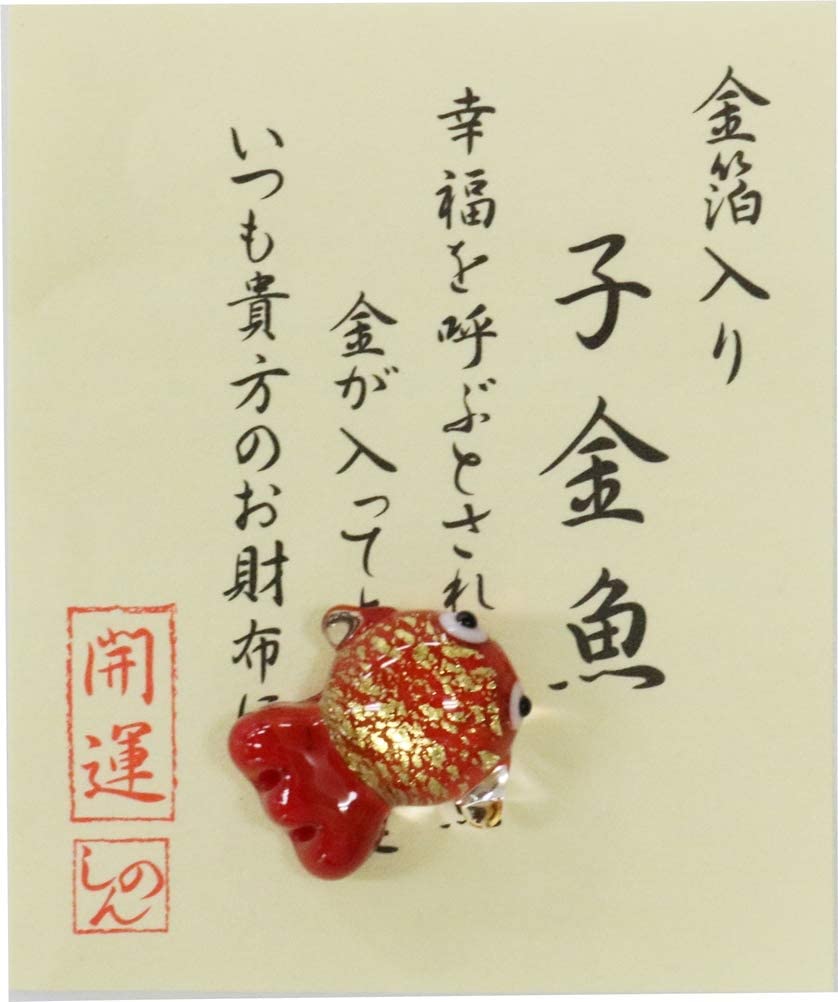 金箔入り
子金魚
幸福を呼ぶとされ
金が入って
いつも貴方のお財布に
開運
のしん